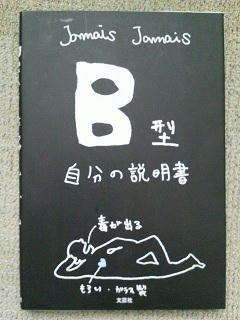 Jamais Jamais
B型
自分の説明書
毒が出る
もろい・ガラス製
文芸社